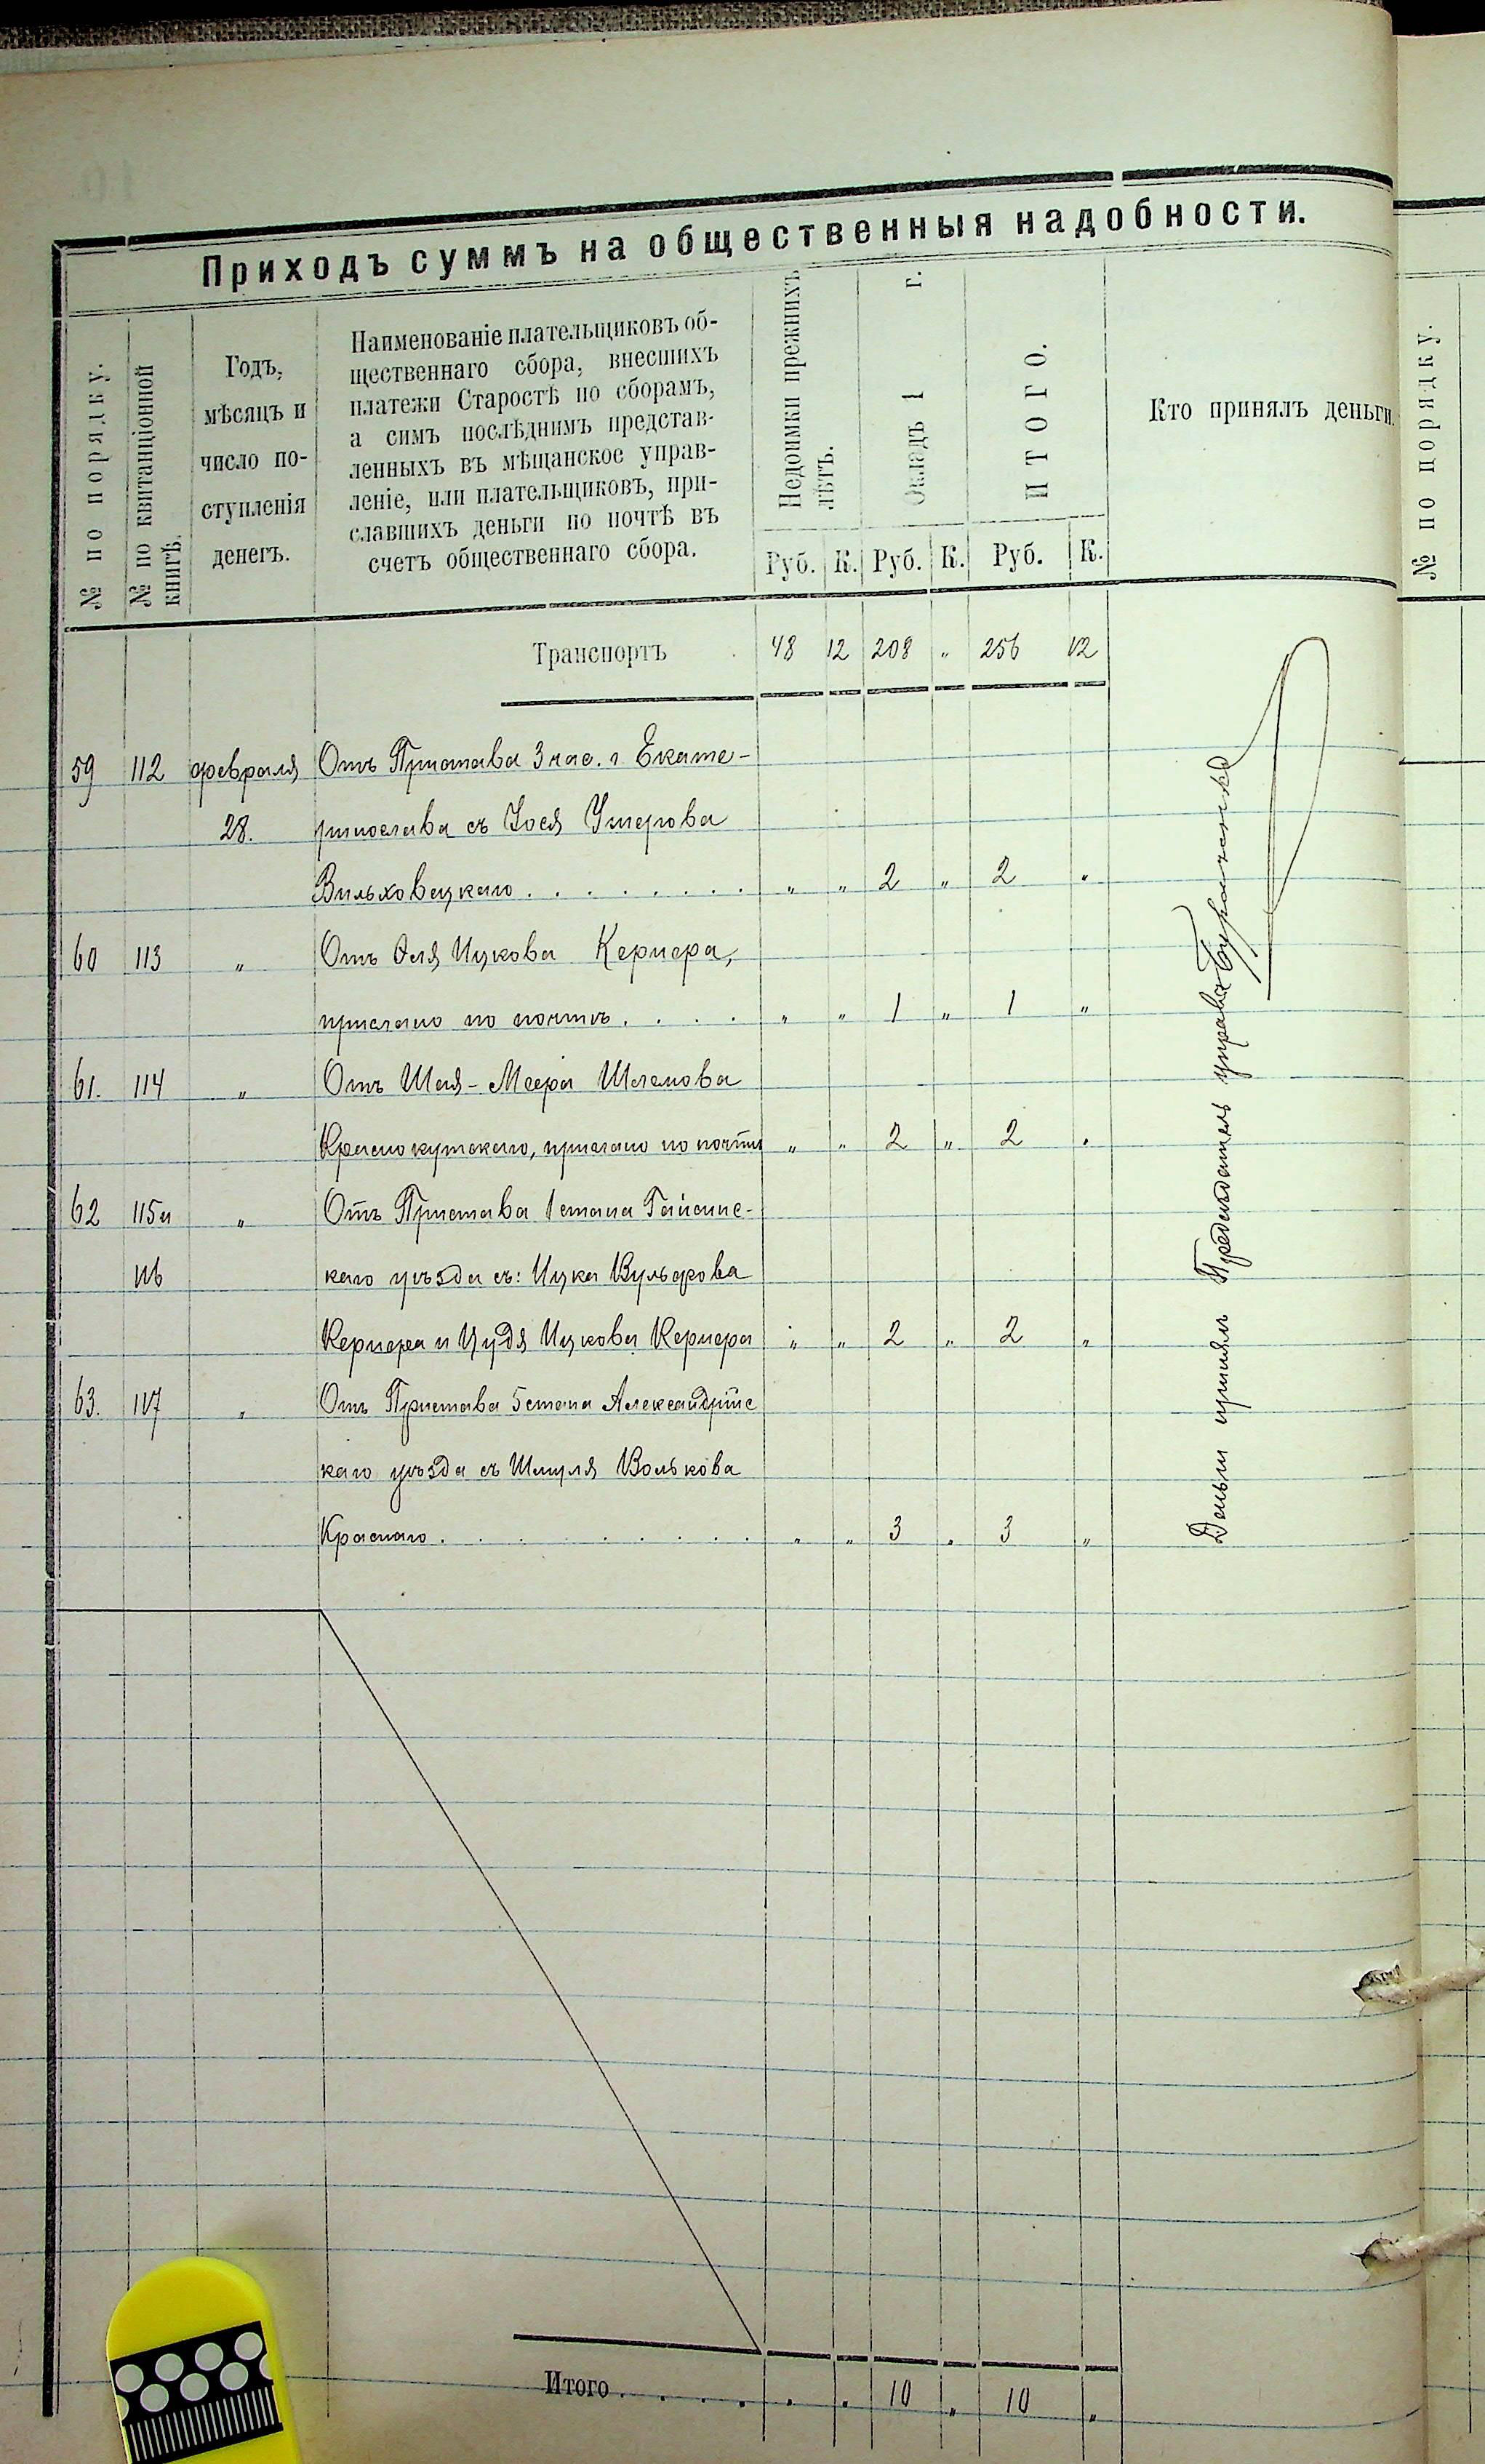 Приходъ суммъ на общественныя надобности.
№ по порядку.
№ по квитанціонной
книгѣ.
Годъ,
мѣсяцъ и
число по-
ступленія
денегъ.
Наименованіе плательщиковъ об-
щественнаго сбора, внесшихъ
платежи Старостѣ по сборамъ,
а симъ послѣднимъ представ-
ленныхъ въ мѣщанское управ-
леніе, или плательщиковъ, при-
славшихъ деньги по почтѣ въ
счетъ общественнаго сбора.
Недоимки прежнихъ
лѣтъ.
Окладъ 1 г.
ИТОГО.
Руб. К. Руб. К. Руб. К.
Кто принялъ деньги.
№ по порядку.
Транспортъ 48 12 208 „ 256 12
59 112 февраля Отъ Пристава 3 час. г. Екате-
28. ринослава съ Іося Умерова
Вильховецкаго . . . . . . . . „ „ 2 „ 2 „
60 113 „ Отъ Эля Ицкова Кернера,
прислано по почтѣ . . . . „ „ 1 „ 1 „
61. 114 „ Отъ Шая-Меера Шлемова
Краснокутскаго, прислано по почтѣ „ „ 2 „ 2 „
62 115 и „ Отъ Пристава 1 стана Гайсинс-
116 каго уѣзда съ: Ицка Вульфова
Кернера и Цудя Ицкова Кернера „ „ 2 „ 2 „
63. 117 „ Отъ Пристава 5 стана Александрійс
каго уѣзда съ Шмуля Волькова
Краснаго . . . . . . . . . „ „ 3 „ 3 „
Деньги принялъ Предсѣдатель управы
Итого . . . . . „ „ 10 „ 10 „